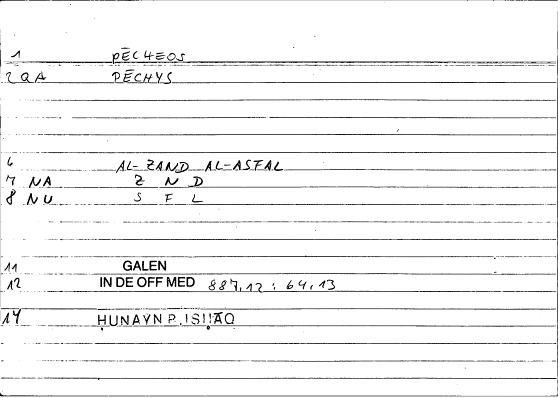 1 PĒCHEOS
2 QA PĒCHYS
6 AL-ZAND AL-ASFAL
7 NA Z N D
8 NU S F L
11 GALEN
12 IN DE OFF MED 887,12 : 64,13
14 ḤUNAYN P. ISḤĀQ